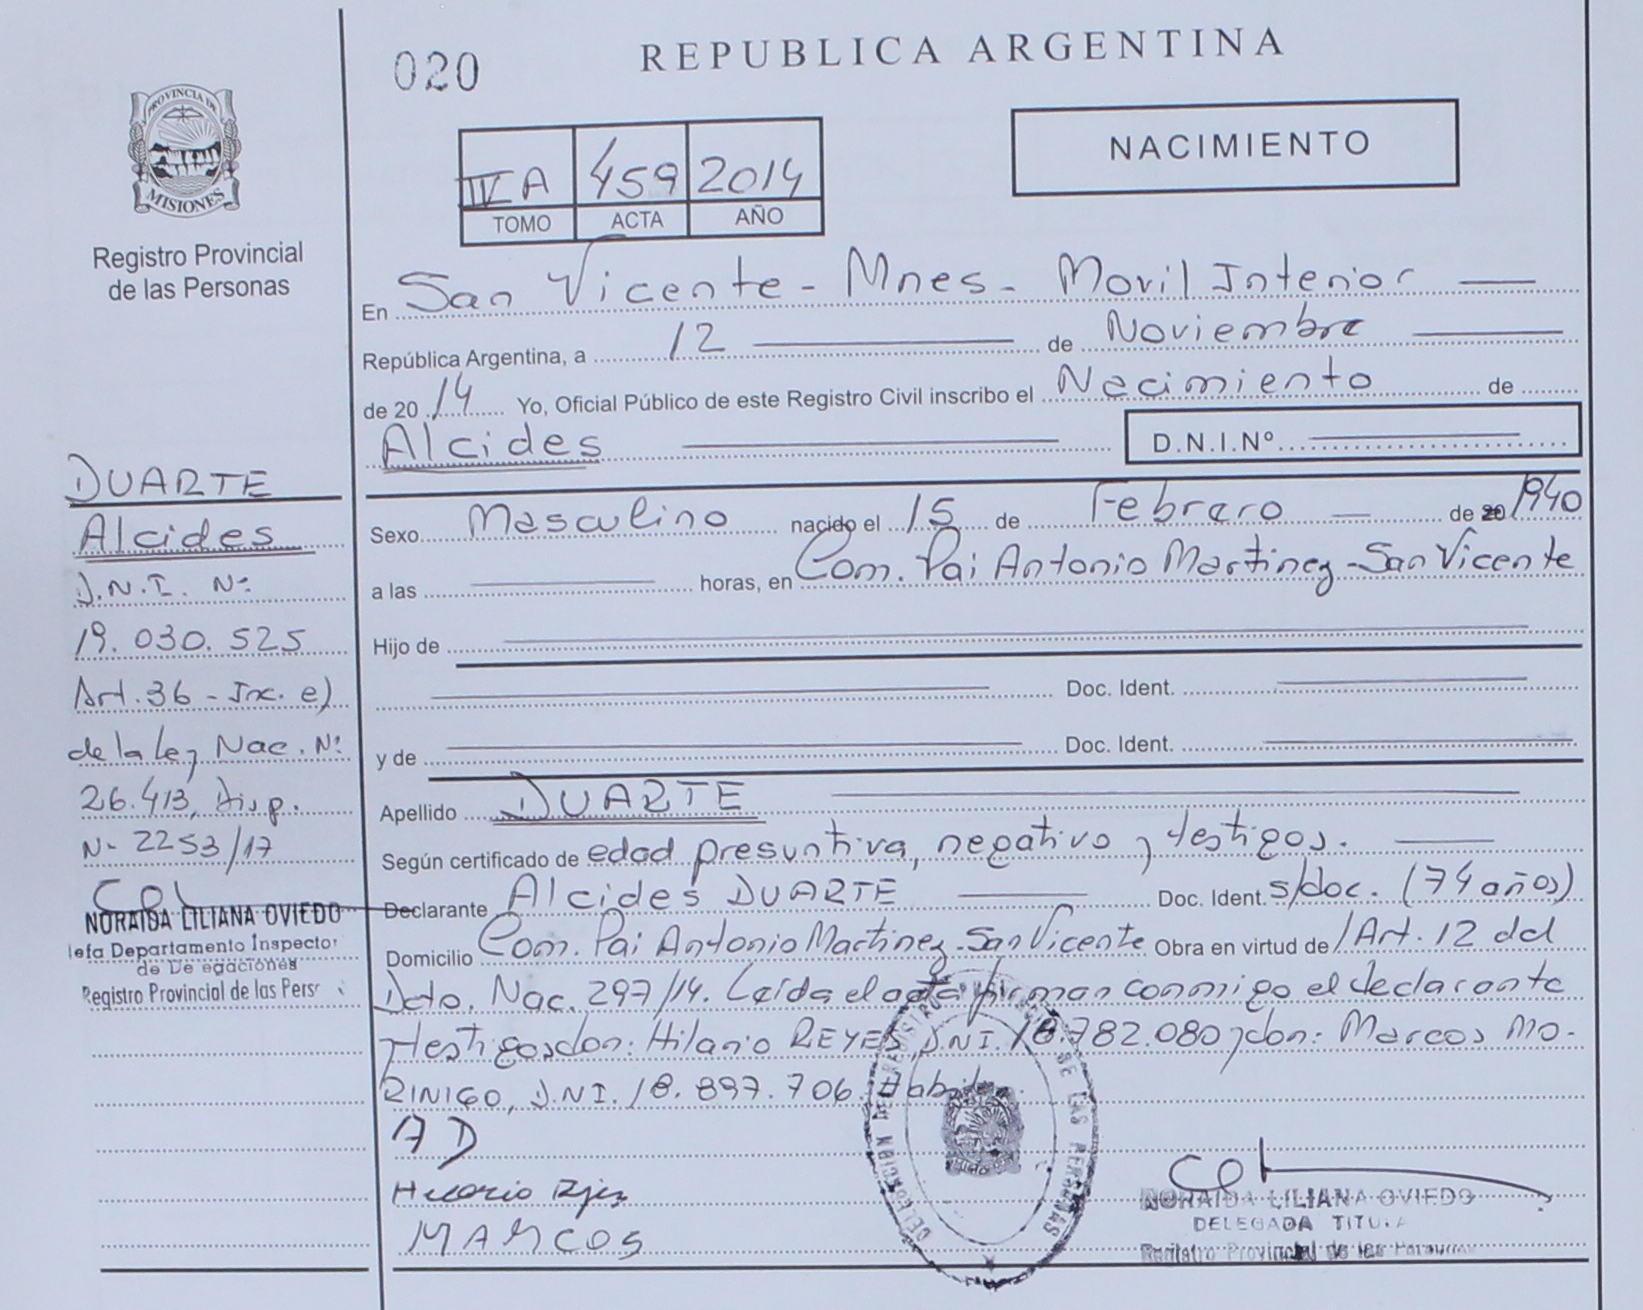 020
REPUBLICA ARGENTINA
PROVINCIA DE
MISIONES
Registro Provincial
de las Personas
NACIMIENTO
IV A 459 2014
TOMO ACTA AÑO
En San Vicente - Mnes - Movil Interior
República Argentina, a 12 de Noviembre
de 2014 Yo, Oficial Público de este Registro Civil inscribo el Nacimiento de
Alcides D.N.I.Nº
DUARTE
Alcides
D.N.I. Nº:
19.030.525
Art. 36 - Inc. e)
de la Ley Nac. Nº
26.413, Disp.
Nº 2253/17
NORAIDA LILIANA OVIEDO
Jefa Departamento Inspector
de De egaciones
Registro Provincial de las Pers
Sexo Masculino nacido el 15 de Febrero de 20 1940
a las horas, en Com. Pai Antonio Martinez - San Vicente
Hijo de
Doc. Ident.
y de Doc. Ident.
Apellido DUARTE
Según certificado de edad presuntiva, negativo y testigos.
Declarante Alcides DUARTE Doc. Ident. s/doc. (74 años)
Domicilio Com. Pai Antonio Martinez - San Vicente Obra en virtud de /Art. 12 del
Dcto. Nac. 297/14. Leída el acta firman conmigo el declarante
y testigos don: Hilario REYES, D.N.I. 18.782.080 y don: Marcos MO-
RINIGO, D.N.I. 18.897.706
AD
MARCOS
DELEGACION DEL REGISTRO PROVINCIAL DE LAS PERSONAS
NORAIDA LILIANA OVIEDO
DELEGADA TITULA
Registro Provincial de las Personas